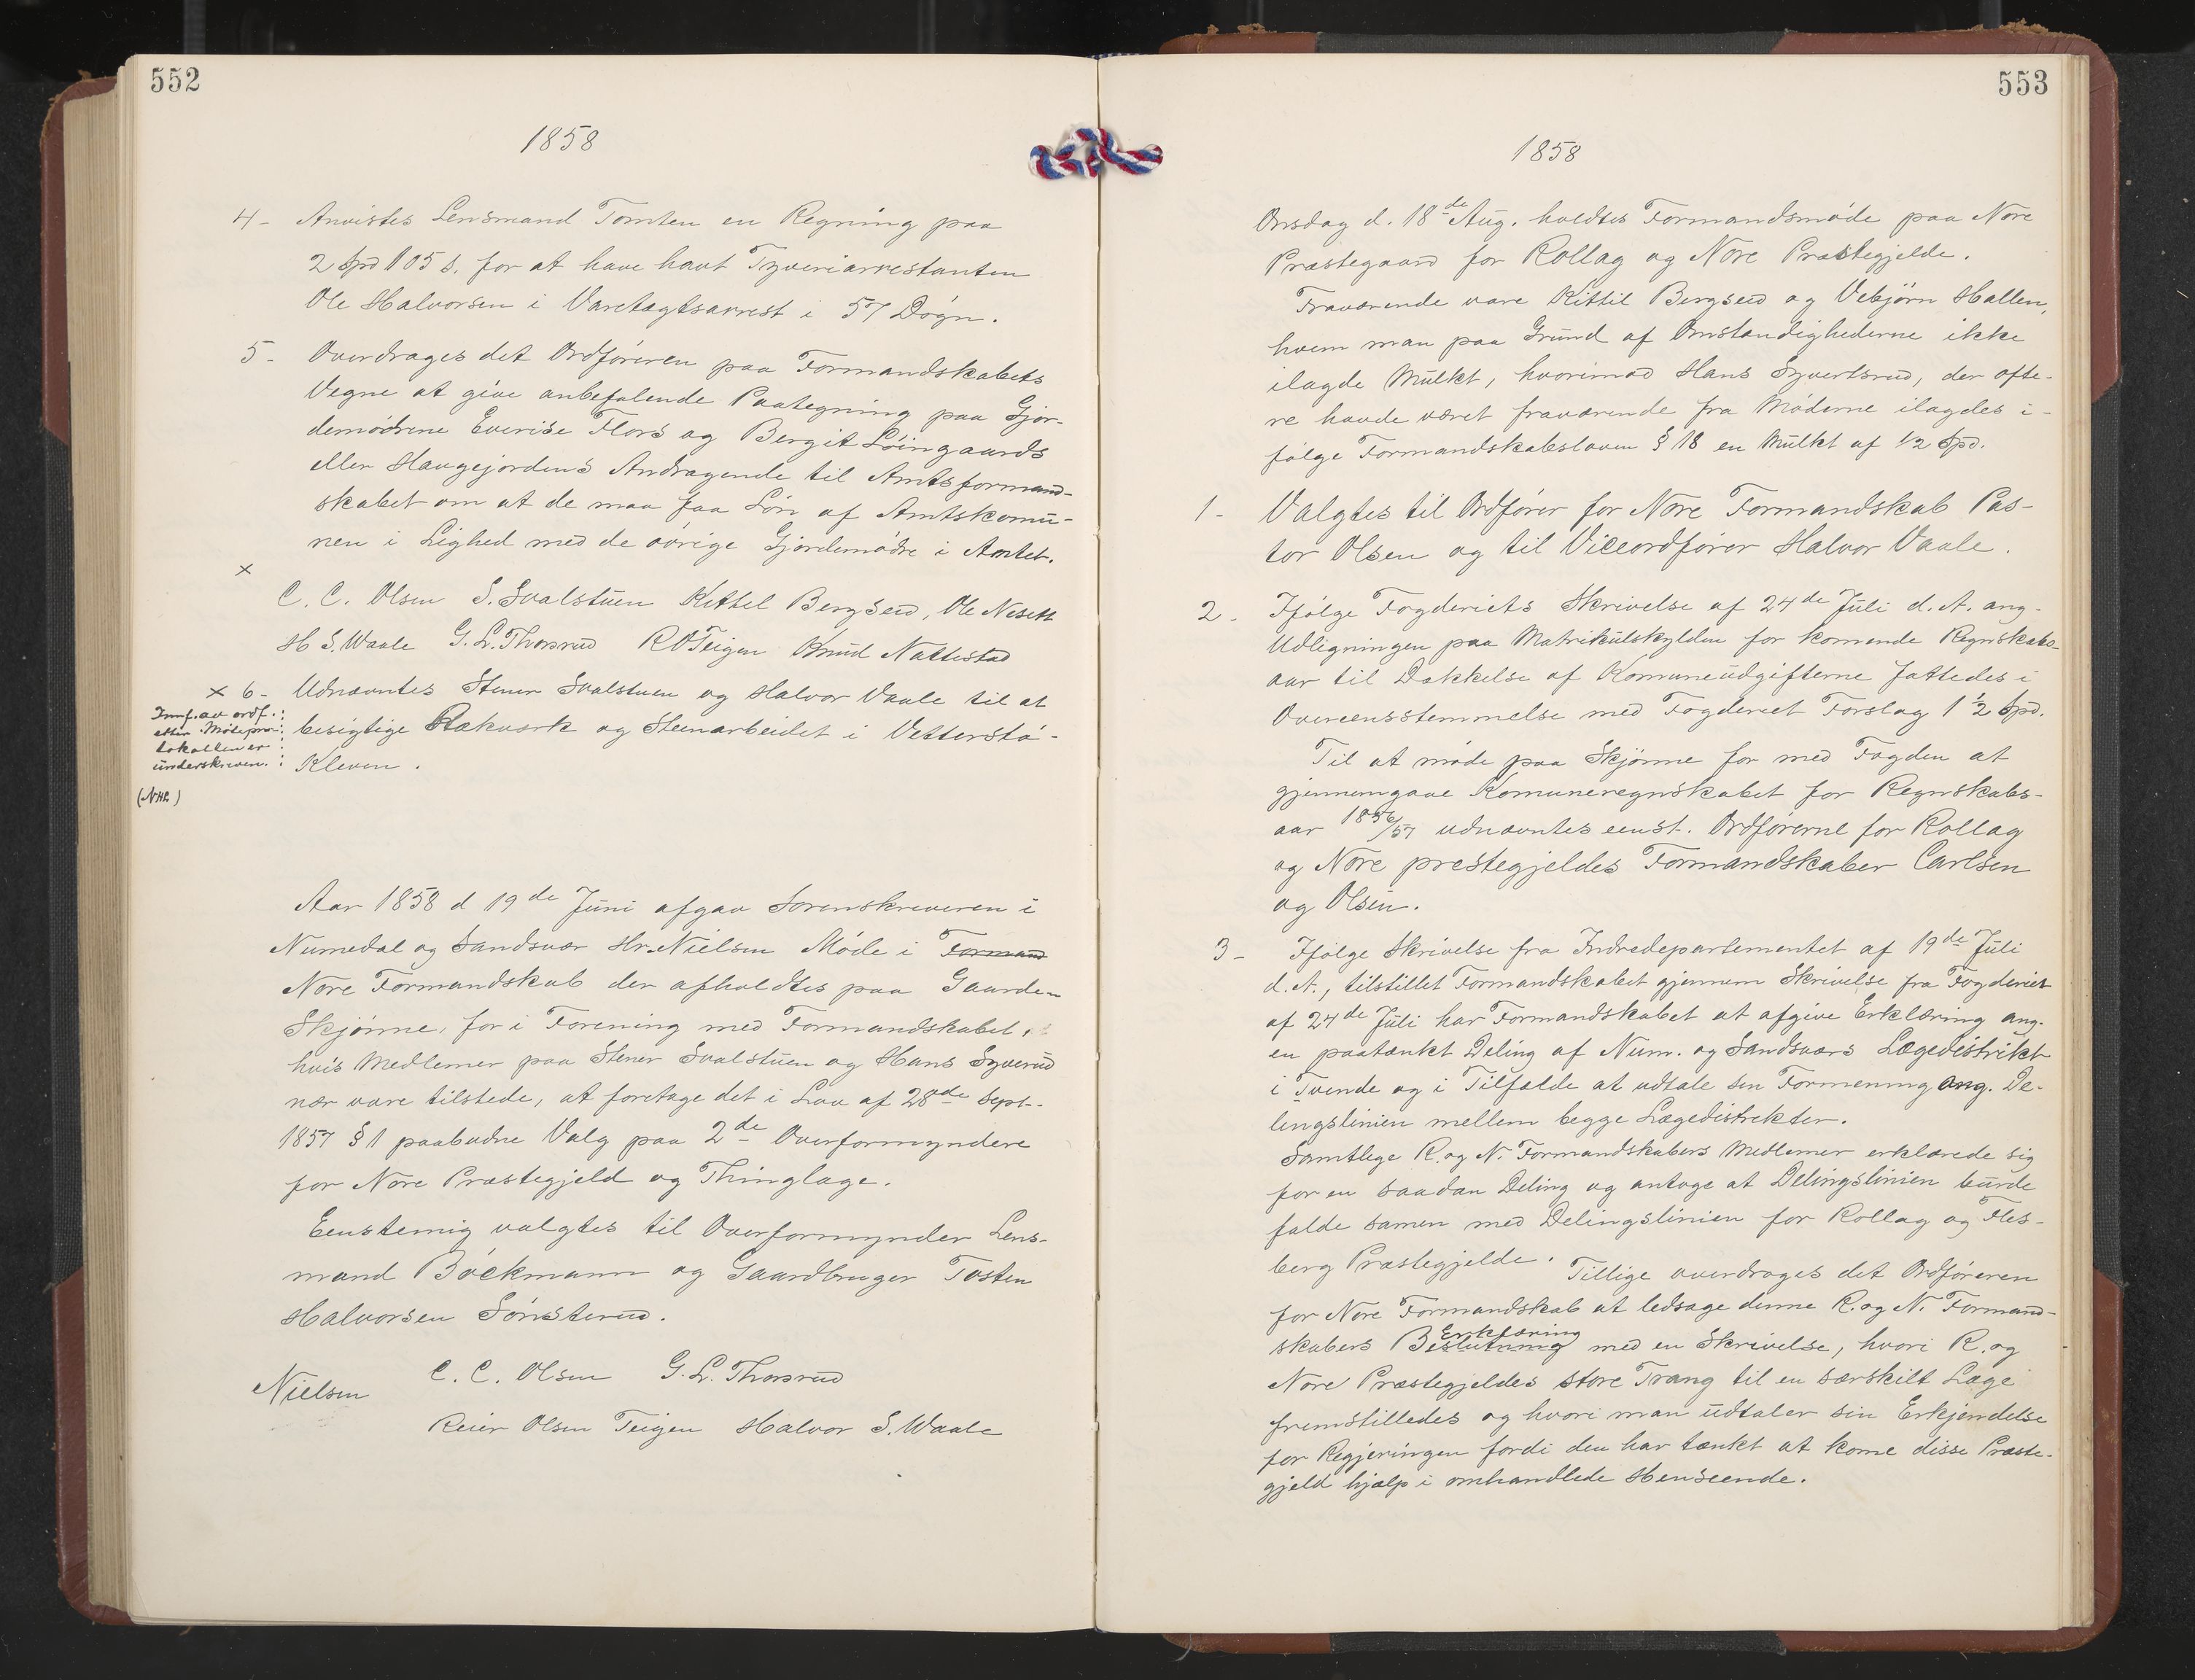 552
1858
4- Anvistes Lensmand Tomten en Regning paa
2 Spd 105 s. for at have havt Tyveriarrestanten
Ole Halvorsen i Varetægtsarrest i 57 Døgn.
5- Overdrages det Ordføreren paa Formandskabets
Vegne at give anbefalende Paategning paa Gjor-
demødrene Everise Flors og Bergit Løingaards
eller Haugejordens Andragende til Amtsformand-
skabet om at de maa faa Løn af Amtskomu-
nen i Lighed med de øvrige Gjordemødre i Amtet.
x
C. C. Olsen S. Svalstuen Kittel Bergseid, Ole Nesett
H S. Waale G. L. Thorsrud R O Teigen Knud Nattestad
x 6- Udnævntes Stener Svalstuen og Halvor Vaale til at
besigtige Rækværk og Steenarbeidet i Vetterstø-
Kleven.
Innf. av ordf.
etter Mötepro-
tokollen er
underskreven.
(NHL)
Aar 1858 d 19de Juni afgav Sorenskriveren i
Numedal og Sandsvær Hr. Nielsen Møde i Formand
Nore Formandskab der afholdtes paa Gaarden
Skjønne, for i Forening med Formandskabet,
hvis Medlemer paa Stener Svalstuen og Hans Syverud
nær vare tilstede, at foretage det i Lov af 28de Sept.
1857 § 1 paabudne Valg paa 2de Overformyndere
for Nore Præstegjeld og Thinglage.
Eenstemig valgtes til Overformynder Lens-
mand Böckmann og Gaardbruger Tosten
Halvorsen Sønsterud.
Nielsen C. C. Olsen G. L. Thorsrud
Reier Olsen Teigen Halvor S. Waale
553
1858
Onsdag d. 18de Aug. holdtes Formandsmøde paa Nore
Præstegaard for Rollag og Nore Præstegjelde.
Fraværende vare Kittil Bergseid og Vebjørn Hallen,
hvem man paa Grund af Omstændighederne ikke
ilagde Mulkt, hvorimod Hans Syvertsrud, der ofte-
re havde været fraværende fra Møderne ilagdes i-
følge Formandskabsloven § 18 en Mulkt af 1/2 Spd.
1- Valgtes til Ordfører for Nore Formandskab Pas-
tor Olsen og til Viceordfører Halvor Vaale.
2- Ifølge Fogderiets Skrivelse af 24de Juli d. A. ang.
Udligningen paa Matrikulskylden for komende Regnskabs-
aar til Dækkelse af Komuneudgifterne fattedes i
Overeensstemmelse med Fogderiet Forslag 1 1/2 Spd.
Til at møde paa Skjønne for med Fogden at
gjennemgaae Komuneregnskabet for Regnskabs-
aar 1856/57 udnævntes eenst. Ordførerne for Rollag
og Nore prestegjeldes Formandskaber Carlsen
og Olsen.
3- Ifølge Skrivelse fra Indredepartementet af 19de Juli
d. A., tilstillet Formandskabet gjennem Skrivelse fra Fogderiet
af 24de Juli har Formandskabet at afgive Erklæring ang.
en paatænkt Deling af Num. og Sandsværs Lægedistrikt
i Tvende og i Tilfælde at udtale sin Formening ang. De-
lingslinien mellem begge Lægedistrikter.
Samtlige R. og N. Formandskabers Medlemer erklærede sig
for en saadan Deling og antoge at Delingslinien burde
falde samen med Delingslinien for Rollag og Fles-
berg Præstegjelde. Tillige overdroges det Ordføreren
for Nore Formandskab at ledsage denne R. og N. Formand-
skabers Beslutning Erklæring med en Skrivelse, hvori R. og
Nore Præstegjeldes store Trang til en særskilt Læge
fremstilledes og hvori man udtaler sin Erkjendelse
for Regjeringen fordi den har tænkt at kome disse Præste-
gjeld hjælp i omhandlede Henseende.